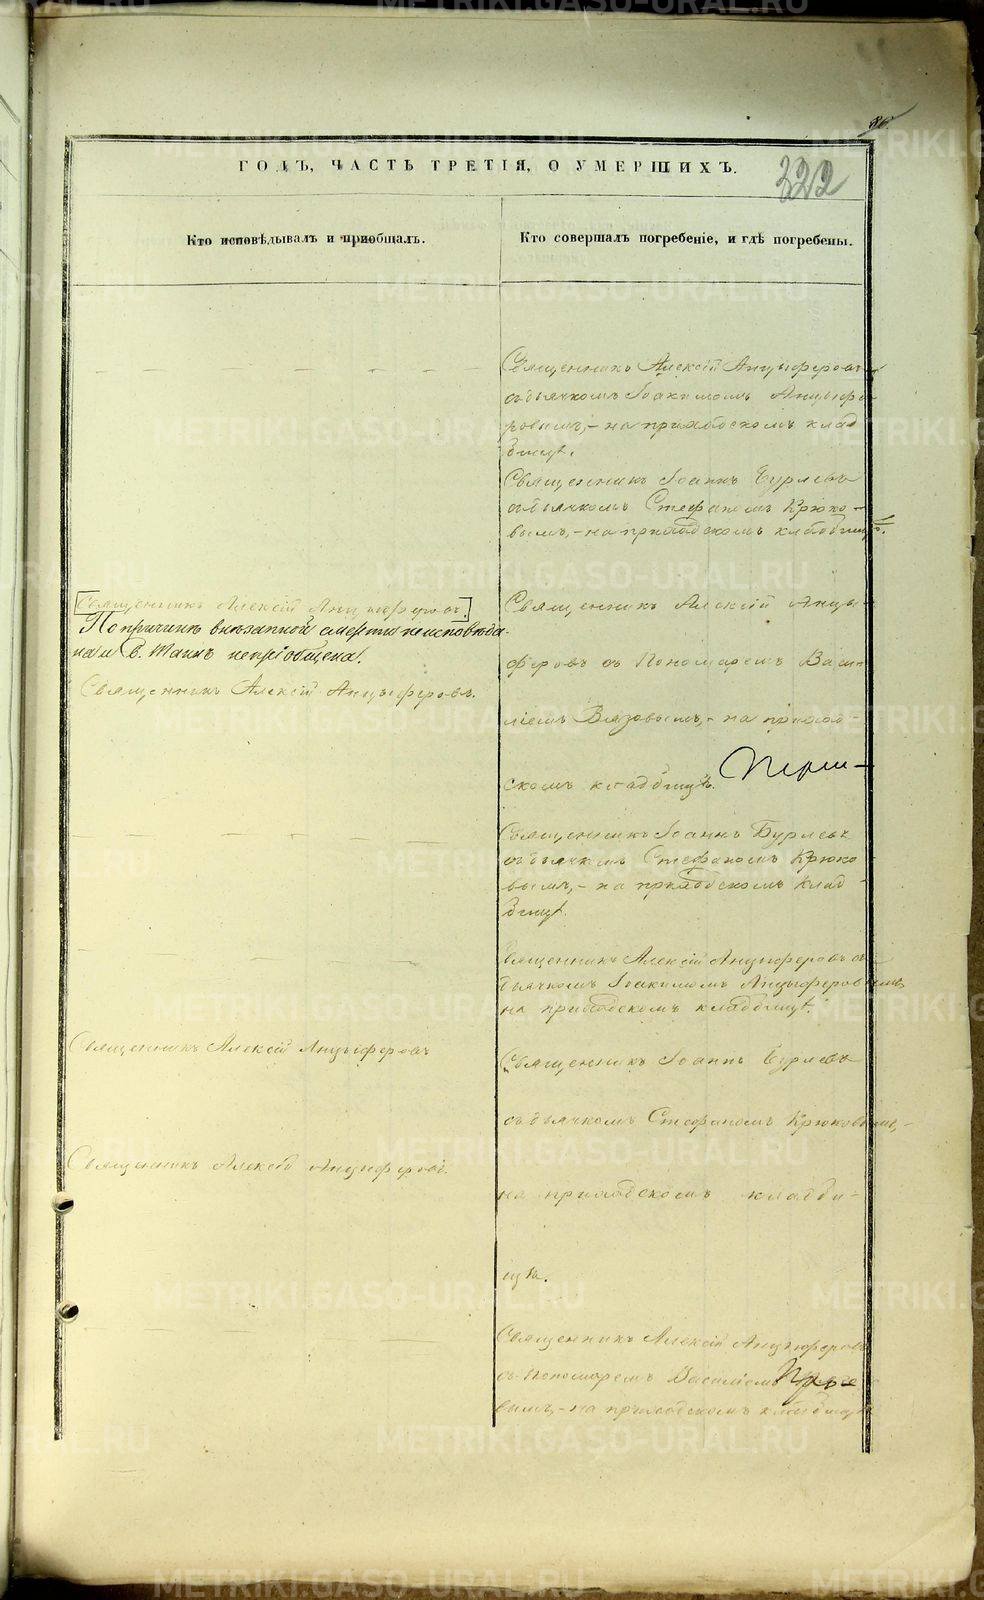 86.
322
ГОДЪ, ЧАСТЬ ТРЕТІЯ, О УМЕРШИХЪ.
Кто исповѣдывалъ и пріобщалъ.
Кто совершалъ погребеніе, и гдѣ погребены.
Священникъ Алексій Анцыферовъ
съ дьячкомъ Іоакимомъ Анцыфе
ровымъ, - на приходскомъ клад
бищѣ.
Священникъ Іоаннъ Бурлевъ
съ дьячкомъ Стефаномъ Крюко-
вымъ, - на приходскомъ кладбищѣ.
Священникъ Алексій Анцыферовъ.
По причинѣ внезапной смерти неисповѣда-
на и Св. Таинъ непріобщена.
Священникъ Алексій Анцыферовъ.
Священникъ Алексій Анцы-
феровъ съ Пономаремъ Васи-
ліемъ Вязовымъ, - на приход-
скомъ кладбищѣ.
Священникъ Іоаннъ Бурлевъ
съ дьячкомъ Стефаномъ Крюко-
вымъ, - на приходскомъ клад-
бищѣ.
Священникъ Алексій Анцыферовъ съ
дьячкомъ Іоакимомъ Анцыферовымъ,
на приходскомъ кладбищѣ.
Священникъ Алексій Анцыферовъ
Священникъ Іоаннъ Бурлевъ
съ дьячкомъ Стефаномъ Крюковымъ, -
Священникъ Алексій Анцыферовъ.
на приходскомъ кладби-
щѣ.
Священникъ Алексій Анцыферовъ
съ пономаремъ Василіемъ
вымъ, - на приходскомъ кладбищѣ
METRIKI.GASO-URAL.RU